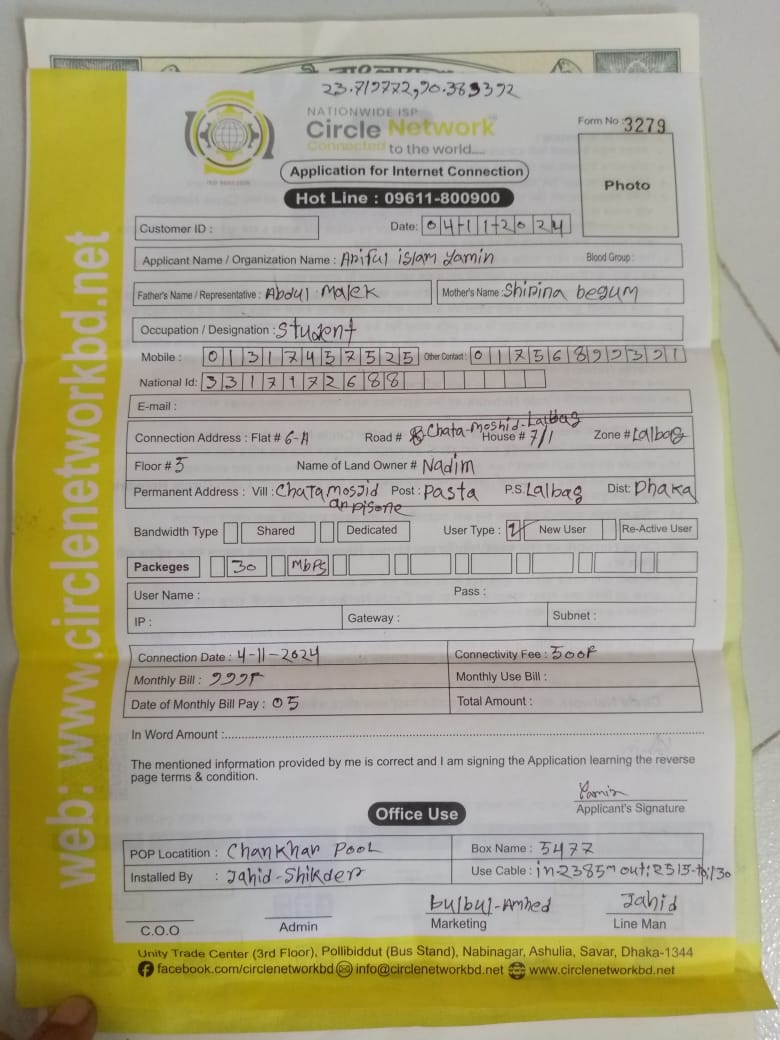 23.719772,90.385392
NATIONWIDE ISP
Circle Network
Connected to the world....
Form No : 3279
Application for Internet Connection
Photo
Hot Line : 09611-800900
Customer ID :
Date: 04-11-2024
Applicant Name / Organization Name : Ariful islam Yamin Blood Group :
Father's Name / Representative : Abdul Malek Mother's Name : Shirina begum
Occupation / Designation : Student
Mobile : 01317457525 Other Contact : 01756899391
National Id: 3317172688
E-mail :
Connection Address : Flat # 6-A Road # Chata-Moshid-Lalbag House # 7/1 Zone # Lalbag
Floor # 5 Name of Land Owner # Nadim
Permanent Address : Vill : Chatamosjid Post : Posta P.S. Lalbag Dist: Dhaka
Bandwidth Type Shared Dedicated User Type : New User Re-Active User
Packeges 30 Mbps
User Name : Pass :
IP : Gateway : Subnet :
Connection Date : 4-11-2024 Connectivity Fee : 500৳
Monthly Bill : 999৳ Monthly Use Bill :
Date of Monthly Bill Pay : 05 Total Amount :
In Word Amount :
The mentioned information provided by me is correct and I am signing the Application learning the reverse
page terms & condition.
Yamin
Applicant's Signature
Office Use
POP Locatition : Chankhar Pool Box Name : 5477
Installed By : Jahid-Shikder Use Cable : in-2385m out:2515-to:130
bulbul-Amhed Jahid
C.O.O Admin Marketing Line Man
Unity Trade Center (3rd Floor), Pollibiddut (Bus Stand), Nabinagar, Ashulia, Savar, Dhaka-1344
facebook.com/circlenetworkbd info@circlenetworkbd.net www.circlenetworkbd.net
web: www.circlenetworkbd.net